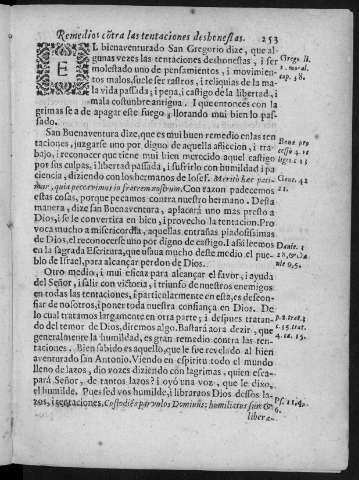 Remedios cõtra las tentaciones deshonestas. 253
EL bienaventurado San Gregorio dize, que al-
gunas vezes las tentaciones deshonestas, i ser
molestado uno de pensamientos, i movimien-
tos malos, suele ser rastros, i reliquias de la ma-
la vida passada; i pena, i castigo de la libertad, i
mala costumbre antigua. I que entonces con la-
grimas se a de apagar este fuego, llorando mui bien lo pas-
sado.
Grego. li.
2. moral.
cap. 38.
San Buenaventura dize, que es mui buen remedio en las ten
taciones, juzgarse uno por digno de aquella afliccion, i tra-
bajo, i reconocer que tiene mui bien merecido aquel castigo
por sus culpas, i libertad passada, i sufrirlo con humildad i pa
ciencia, diziendo con los hermanos de Iosef. Merito hæc pati-
mur, quia peccavimus in fratrem nostrum. Con razon padecemos
estas cosas, porque pecamos contra nuestro hermano. Desta
manera, dize san Buenaventura, aplacará uno mas presto a
Dios, i se le convertira en bien, i provecho la tentacion. Pro
voca mucho a misericordia, aquellas entrañas piadosissimas
de Dios, el reconocerse uno por digno de castigo. I assi leemos
en la sagrada Escritura, que usava mucho deste medio el pue-
blo de Israel, para alcançar perdon de Dios.
Bona pro
Gene. 42
21.
Danie. 3
28. &
Otro medio, i mui eficaz para alcançar el favor, i ayuda
del Señor, i salir con victoria, i triunfo de nuestros enemigos
en todas las tentaciones, i particularmente en esta, es descon-
fiar de nosotros, i poner toda nuestra confiança en Dios. De
lo cual tratamos largamente en otra parte; i despues tratan-
do del temor de Dios, diremos algo. Bastará aora dezir, que
generalmente la humildad, es gran remedio contra las ten-
taciones. Bien sabido es aquello, que le fue revelado al bien
aventurado san Antonio. Viendo en espiritu todo el mundo
lleno de lazos, dio vozes diziendo con lagrimas, quien esca-
pará Señor, de tantos lazos? i oyó una voz, que le dixo,
el humilde. Pues sed vos humilde, i libraraos Dios dessos la-
zos, i tentaciones. Custodiẽs parvulos Dominus: humiliatus sum &
libera-
p. 2. trat. 3
c. 35. trat.
4. c. 15.
Ps. 114.
6.